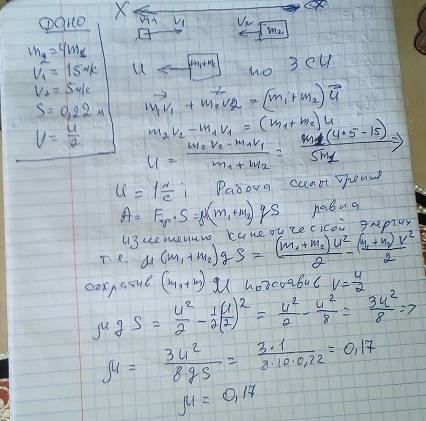 Дано
m₂=4m₁
V₁=15м/с
V₂=5м/с
S=0,22м
V=u/2
X
m₁ V₁ V₂ m₂
u m₁+m₂ по ЗСИ
m₁V₁ + m₂V₂ = (m₁+m₂)u
m₂V₂ - m₁V₁ = (m₁+m₂)u
u = (m₂V₂-m₁V₁)/(m₁+m₂) = m₁(4•5-15)/5m₁
u = 1м/с; Работа силы трения
A = Fтр•S=μ(m₁+m₂)gS равна
изменению кинетической энергии
т.е. μ(m₁+m₂)gS = (m₁+m₂)u²/2 - (m₁+m₂)V²/2
сократив (m₁+m₂) и подставив V=u/2
μgS = u²/2 - 1/2(u/2)² = u²/2 - u²/8 = 3u²/8 =>
μ = 3u²/8gS = 3•1/8•10•0,22 = 0,17
μ = 0,17